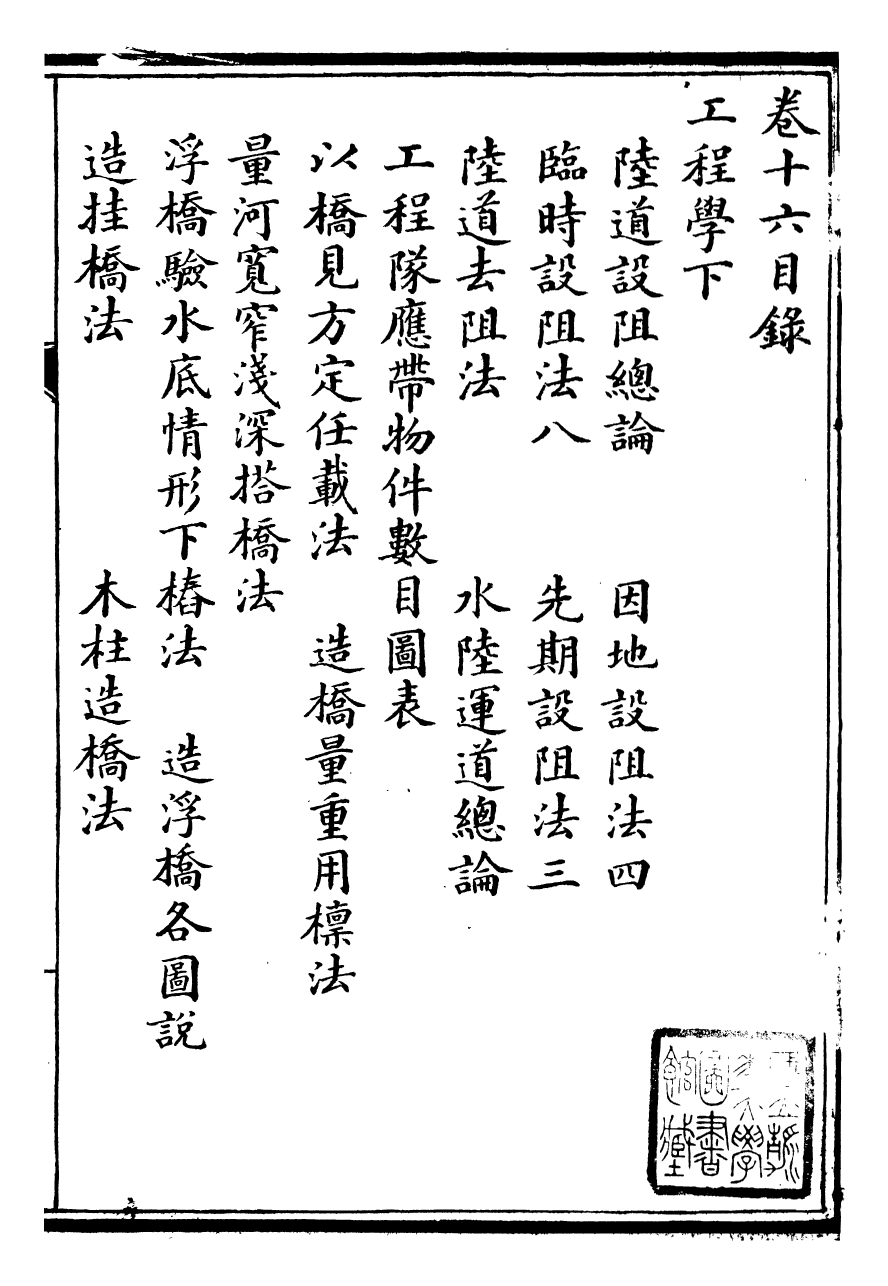 卷十六目錄
工程學下
陸道設阻總論　因地設阻法四
臨時設阻法八　先期設阻法三
陸道去阻法　水陸運道總論
工程隊應帶物件數目圖表
以橋見方定任載法　造橋量重用檁法
量河寬窄淺深搭橋法
浮橋驗水底情形下樁法　造浮橋各圖說
造挂橋法　木柱造橋法